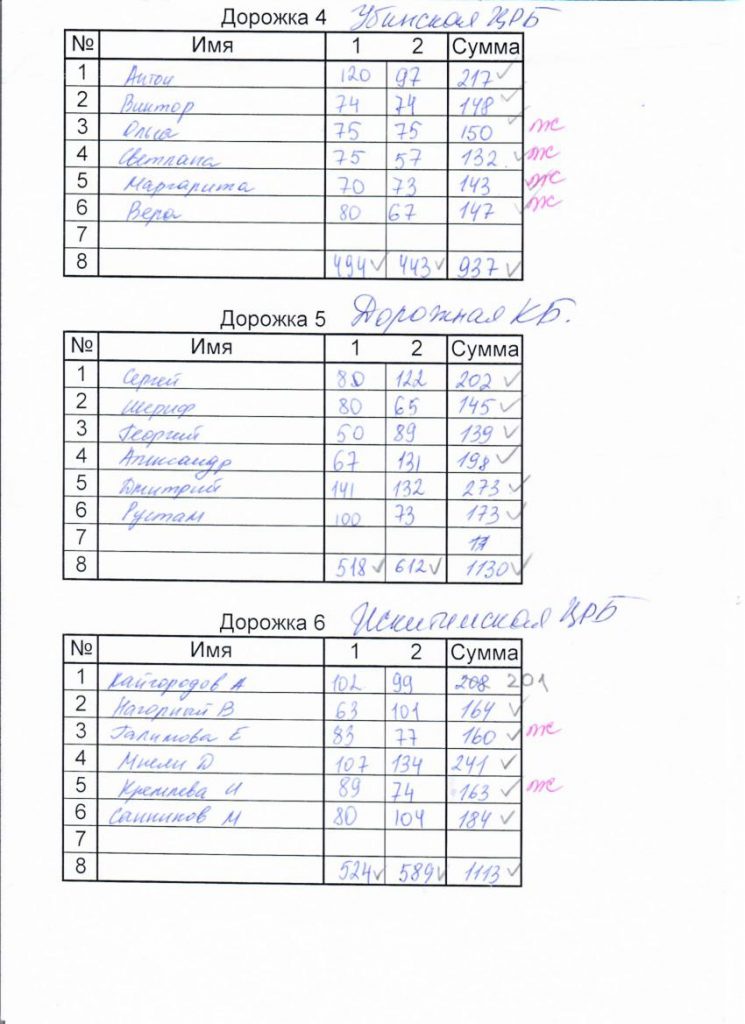 Дорожка 4 Убинская ЦРБ
№ Имя 1 2 Сумма
1 Антон 120 97 217 ✓
2 Виктор 74 74 148 ✓
3 Ольга 75 75 150 ✓ ж
4 Светлана 75 57 132 ✓ ж
5 Маргарита 70 73 143 ✓ ж
6 Вера 80 67 147 ✓ ж
7
8 494 ✓ 443 ✓ 937 ✓
Дорожка 5 Дорожная КБ.
№ Имя 1 2 Сумма
1 Сергей 80 122 202 ✓
2 Шериф 80 65 145 ✓
3 Георгий 50 89 139 ✓
4 Александр 67 131 198 ✓
5 Дмитрий 141 132 273 ✓
6 Рустам 100 73 173 ✓
7
8 518 ✓ 612 ✓ 1130 ✓
Дорожка 6 Искитимская ЦРБ
№ Имя 1 2 Сумма
1 Кайгородов А 102 99 208 201
2 Нагорный В 63 101 164 ✓
3 Галимова Е 83 77 160 ✓ ж
4 Д 107 134 241 ✓
5 Кремлева И 89 74 163 ✓ ж
6 Санников М 80 104 184 ✓
7
8 524 ✓ 589 ✓ 1113 ✓